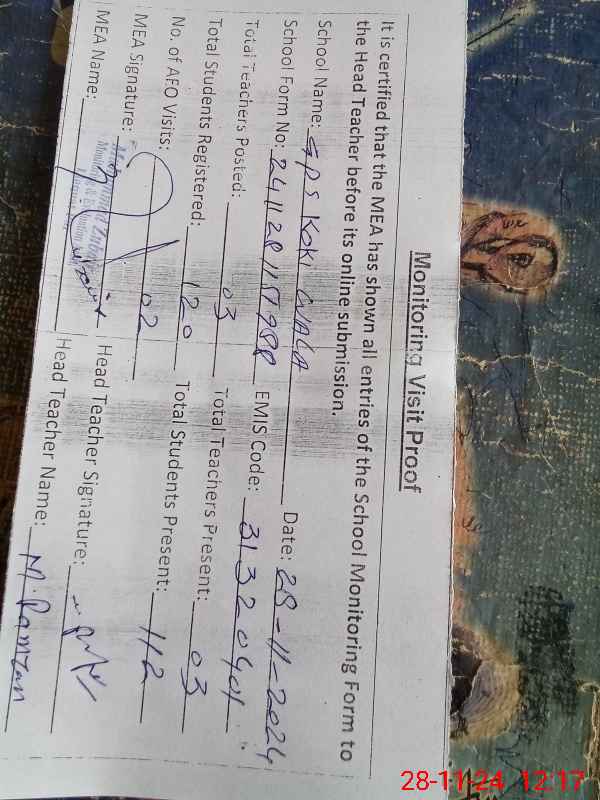 Monitoring Visit Proof
It is certified that the MEA has shown all entries of the School Monitoring Form to
the Head Teacher before its online submission.
School Name: GPS KOKI WALA Date: 28-11-2024
School Form No: EMIS Code: 31320401
Total Teachers Posted: 03 Total Teachers Present: 03
Total Students Registered: 120 Total Students Present: 112
No. of AEO Visits: 02
MEA Signature: Head Teacher Signature:
MEA Name: Head Teacher Name: M. Ramzan
28-11-24 12:17